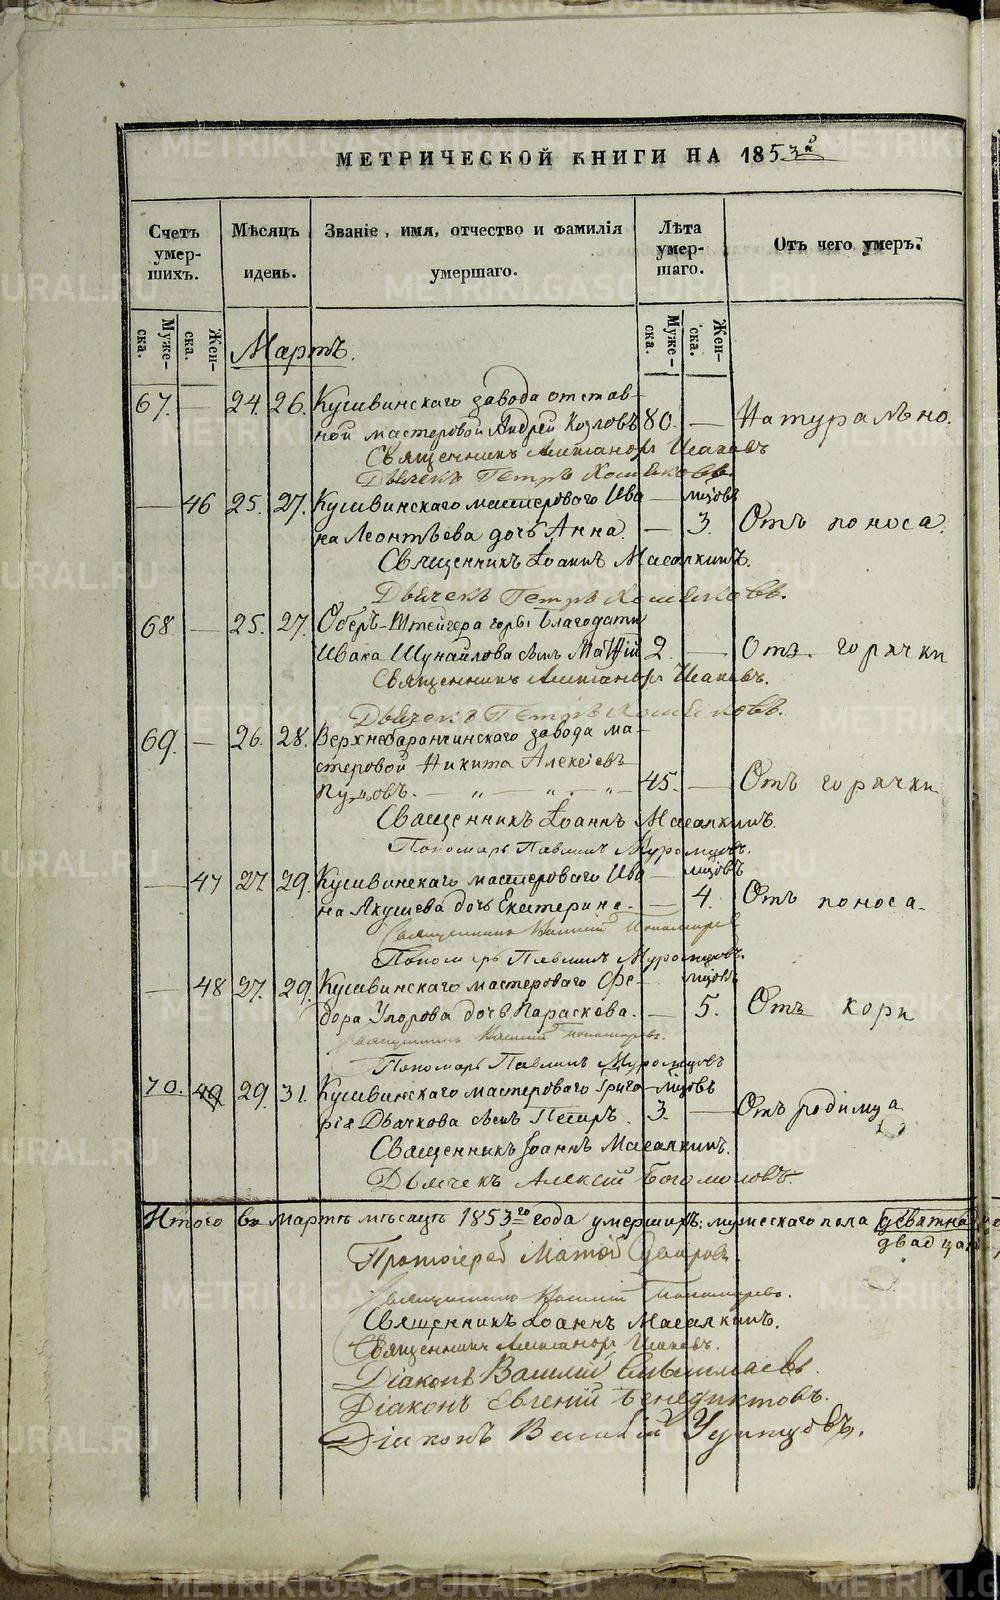 МЕТРИЧЕСКОЙ КНИГИ НА 1853й
Счетъ умер-шихъ. Мѣсяцъ идень. Званіе, имя, отчество и фамилія умершаго. Лѣта умер-шаго. Отъ чего умеръ.
Муже-ска. Жен-ска. Муже-ска. Жен-ска.
Мартъ.
67. — 24. 26. Кушвинскаго завода отстав-
ной мастеровой Андрей Козловъ 80. — Натурально.
Священникъ Александръ Исаковъ
Дьячекъ Петръ Хомяковъ.
— 46 25. 27. Кушвинскаго мастероваго Ива — мѣсцовъ
на Леонтьева дочь Анна. — 3. Отъ поноса.
Священникъ Іоаннъ Масалкинъ.
Дьячекъ Петръ Хомяковъ.
68 — 25. 27. Оберъ-Штейгера горы Благодати
Ивана Шунайлова сынъ Матѳій 2. — Отъ горячки
Священникъ Александръ Исаковъ.
Дьячекъ Петръ Хомяковъ.
69. — 26. 28. Верхнебаранчинскаго завода ма-
стеровой Никита Алексіевъ
45. — Отъ горячки
Священникъ Іоаннъ Масалкинъ.
Пономарь Павлинъ Муромцовъ.
— 47 27. 29. Кушвинскаго мастероваго Ива — мѣсцовъ
на Якушева дочь Екатерина. — 4. Отъ поноса.
Священникъ Василій Пономаревъ
Пономарь Павлинъ Муромцовъ.
— 48 27. 29. Кушвинскаго мастероваго Ѳе- мѣсцовъ
дора Упорова дочь Параскева. — 5. Отъ кори
Священникъ Василій Пономаревъ.
Пономарь Павлинъ Муромцовъ
70. 49 29. 31. Кушвинскаго мастероваго Григо- мѣсцовъ
рія Дьячкова сынъ Петръ. 3. — Отъ родимца
Священникъ Іоаннъ Масалкинъ.
Дьячекъ Алексій Богомоловъ.
Итого въ Мартѣ мѣсяцѣ 1853го года умершихъ: мужескаго пола девятна
двадца
Протоіерей Матѳій
Священникъ Василій Пономаревъ.
Священникъ Іоаннъ Масалкинъ.
Священникъ Александръ Исаковъ.
Діаконъ Василій
Діаконъ Евгеній Бенедиктовъ.
Діаконъ Василій Удинцовъ.
METRIKI.GASO-URAL.RU